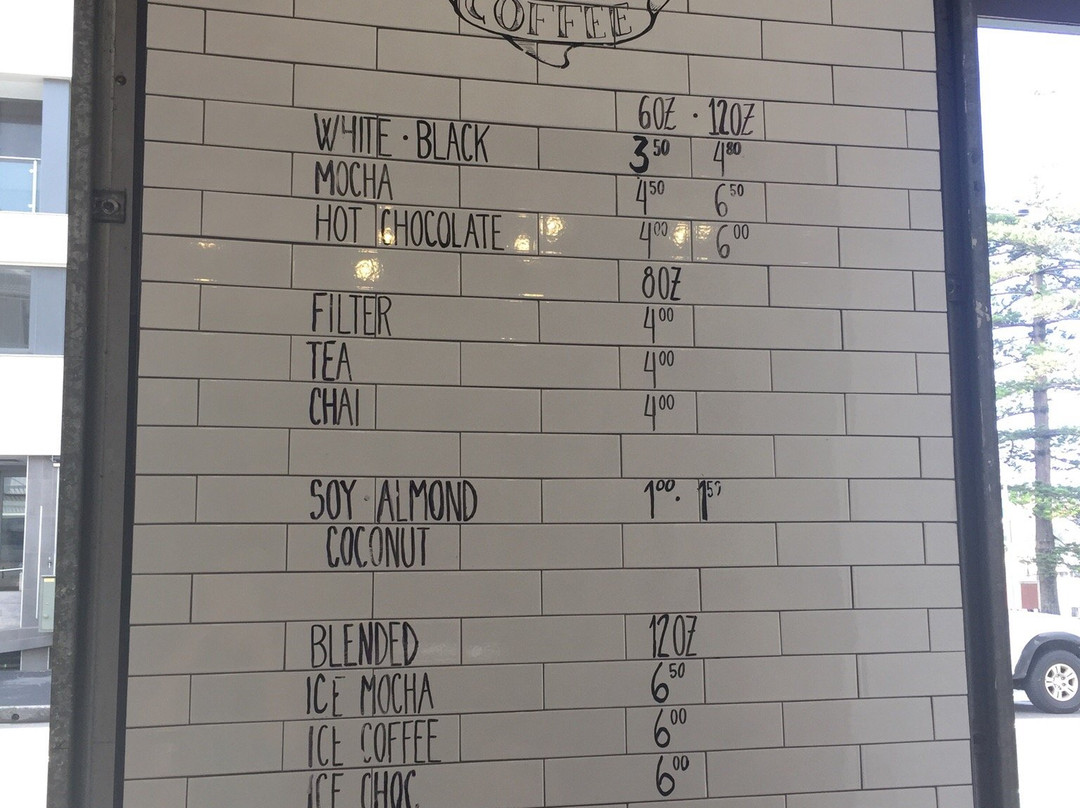 COFFEE
6OZ · 12OZ
WHITE · BLACK 3 50 4 80
MOCHA 4 50 6 50
HOT CHOCOLATE 4 00 6 00
8OZ
FILTER 4 00
TEA 4 00
CHAI 4 00
SOY · ALMOND 1 00 · 1 50
COCONUT
BLENDED 12OZ
ICE MOCHA 6 50
ICE COFFEE 6 00
ICE CHOC 6 00